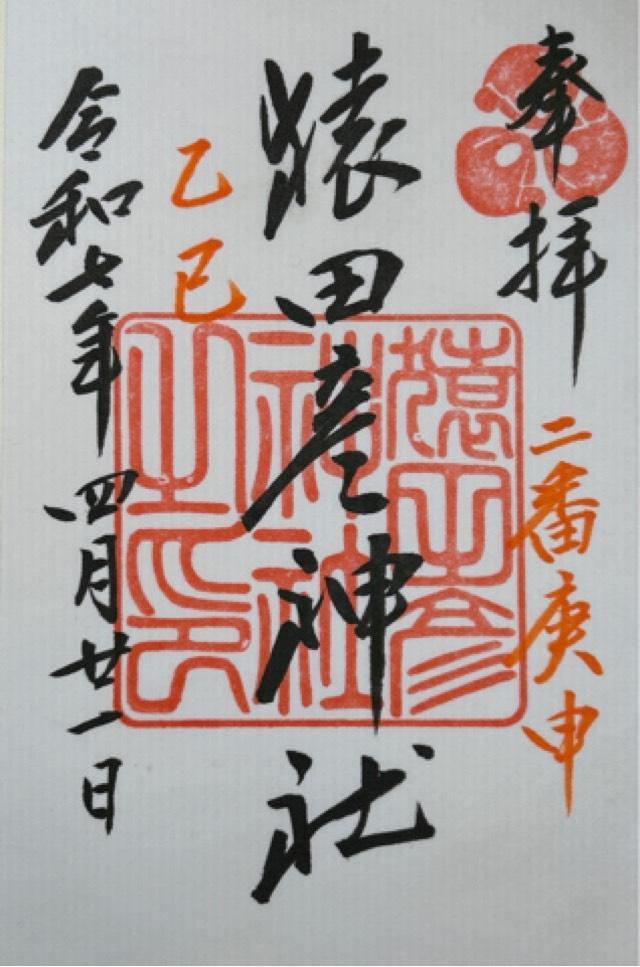 奉拝
二番庚申
猿田彦神社
猿田彦神社之印
乙巳
令和七年四月廿一日